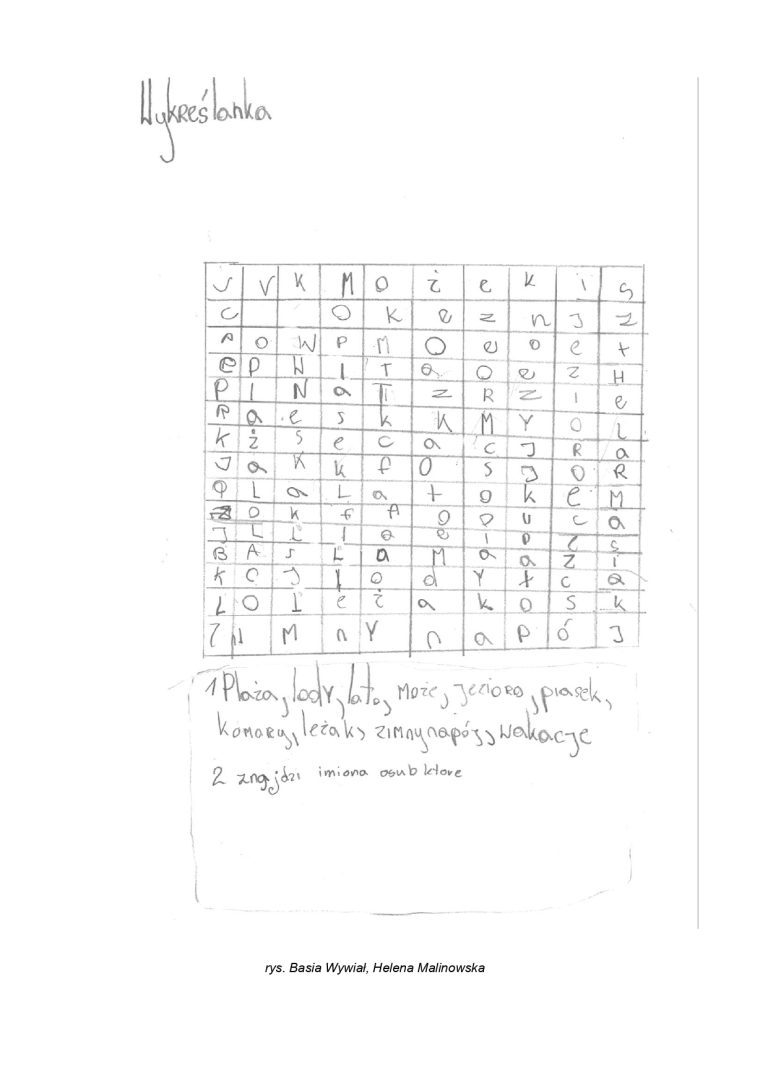 Wykreślanka
J V K M O ż e k i S
C O k e z n J Z
A O W P M O e o e t
e P W I T a O e z H
P I N a T z R z i e
R a e s k K M Y O L
K ż s e c a c J R a
J a K k f O s J O R
Q L a L a t o k e M
Z O k f A O D U c a
J L L I a e i D Z s
B A s L a M a a Z i
K C J I o d Y t c a
L O I e ż a k o s k
Z i M n Y n a p ó J
1 Plaża, lody, lato, Może, Jezioro, piasek,
komary, leżak, zimny napój, Wakacje
2 znajdzi imiona osub ktore
rys. Basia Wywiał, Helena Malinowska